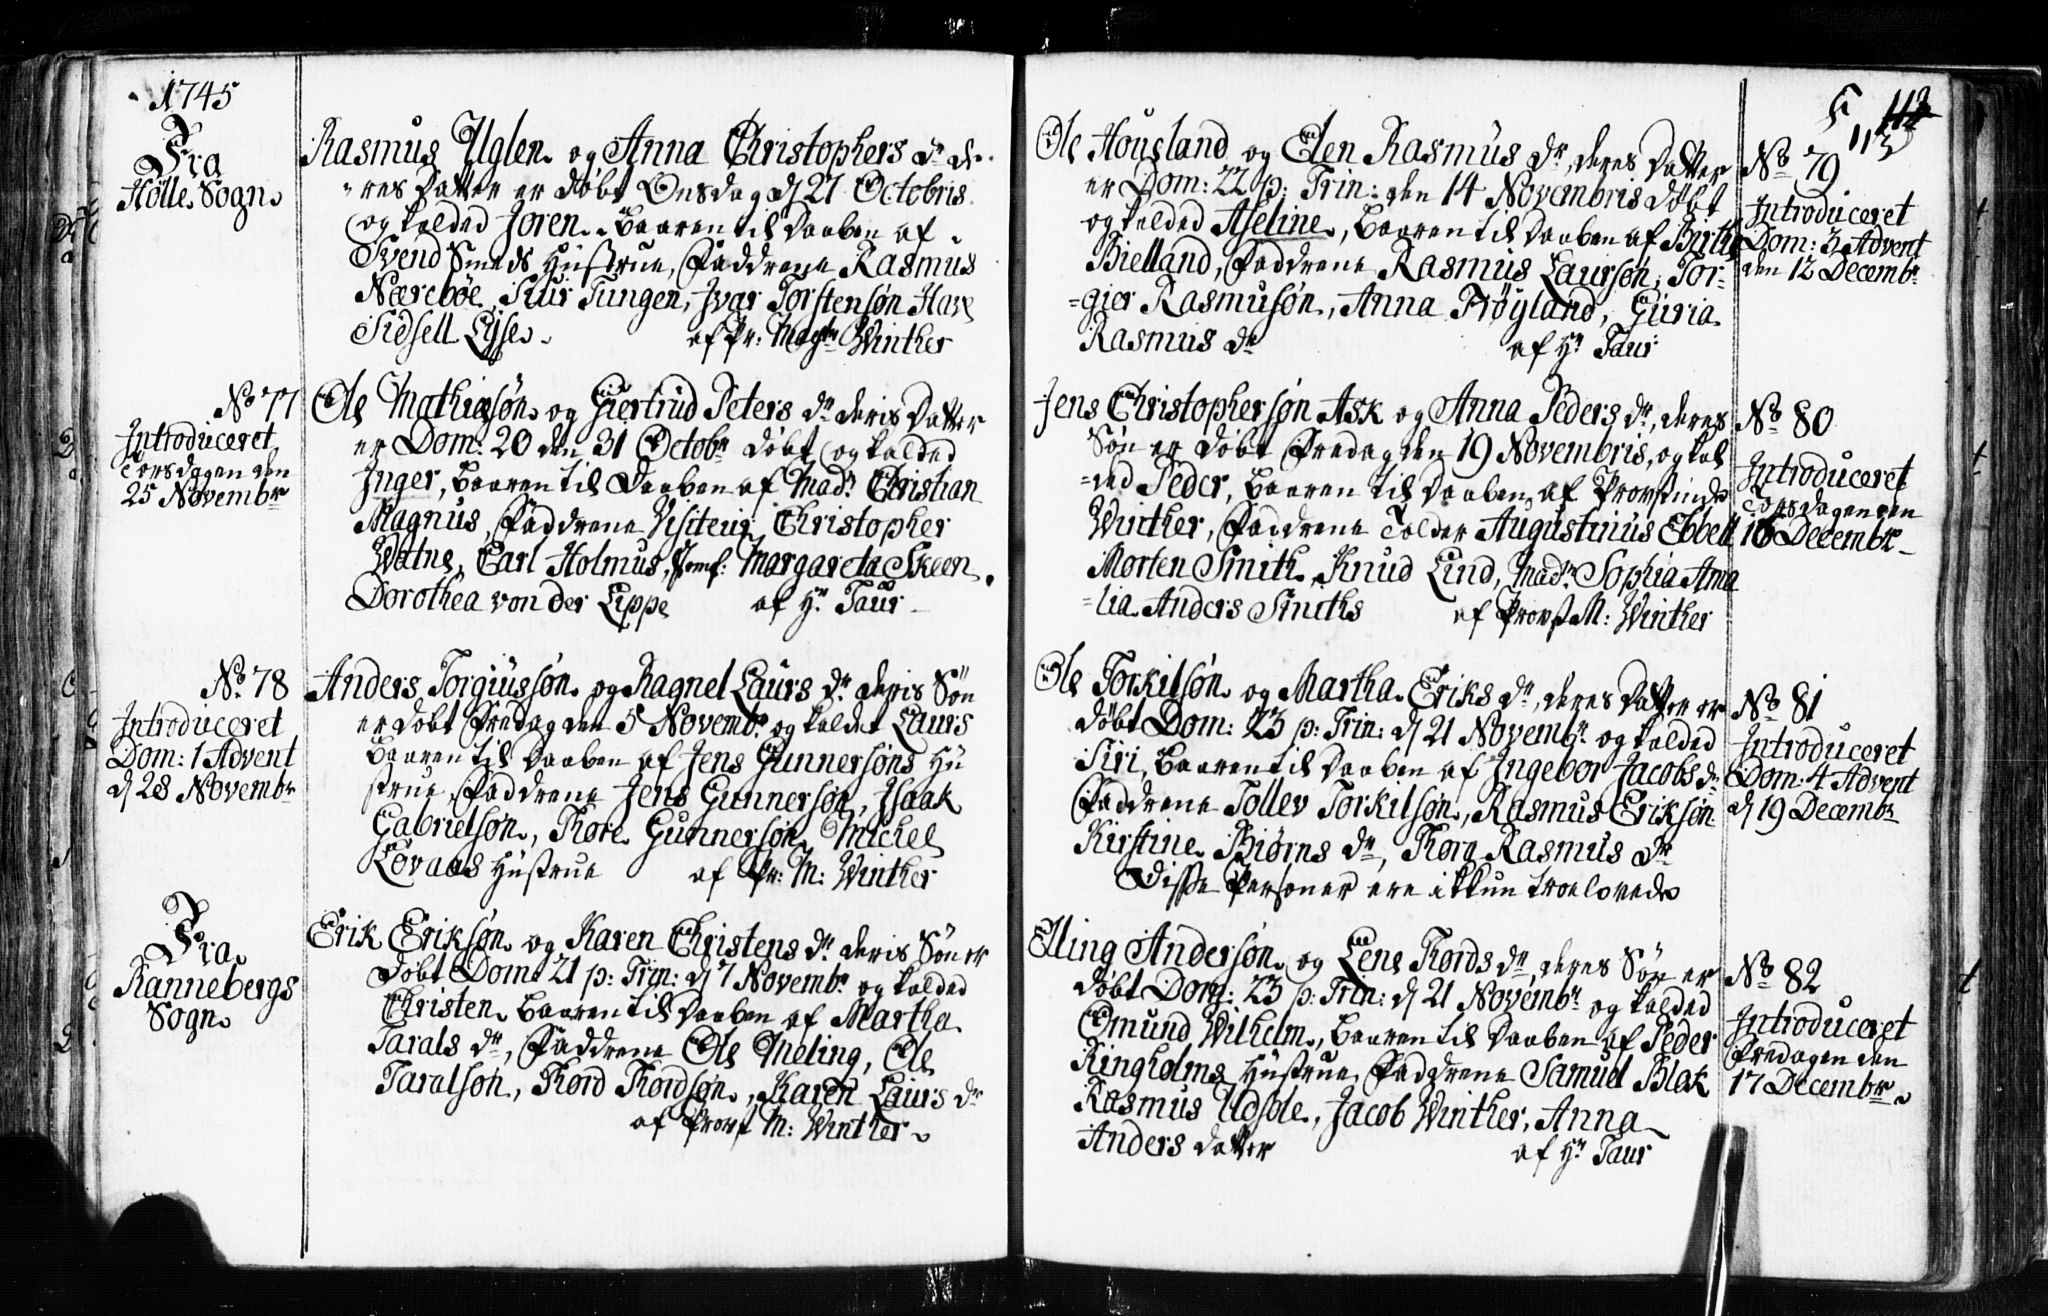 1745
Fra
Hölle Sogn
Rasmus Uglen og Anna Christophers dr de-
-res Datter er döbt Onsdag d 27 Octobris
og kalded Joren, baaren til Daaben af
Svend Smeds Hustrue, Faddrene Rasmus
Næreböe, Siur Tungen, Jvar Torstensøn
Sidsell Lyse af Pr: Magr Winther
No 77
Introduceret
Torsdagen den
25 Novembr
Ole Mathiesøn og Giertrud Peters dr deris Datter
er Dom: 20 den 31 Octobr döbt og kalded
Inger, baaren til Daaben af Madm Christian
Magnus, Faddrene Visiteur Christopher
Watne, Carl Holmus, Jomf: Margareta Skeen
Dorothea von der Lippe af Hr Taur
No 78
Introduceret
Dom: 1 Advent
d 28 Novembr
Anders Torgiussøn og Ragnel Laurs dr deris Søn
er döbt Fredag den 5 Novembr og kaldet Laurs
baaren til Daaben af Jens Gunnersøns Hu
strue, Faddrene Jens Gunnersøn, Jsaak
Gabrielsøn, Thore Gunnersøn, Michel
Løvaas Hustrue af Pr: M: Winther
Fra
Rannebergs
Sogn
Erik Eriksøn og Karen Christens dr deris Søn er
döbt Dom: 21 p: Trin: d 7 Novembr og kalded
Christen, baaren til Daaben af Martha
Tarals dr, Faddrene Ole Meling, Ole
Taralsøn, Thord Thordsøn, Karen Laurs dr
af Provst M: Winther
113
Ole Housland og Elen Rasmus dr, deres Datter
er Dom: 22 p: Trin: den 14 Novembris döbt
og kalded Aseline, baaren til Daaben af Birthe
Bielland, Faddrene Rasmus Laursøn, Tor-
=gier Rasmusøn, Anna Frøyland, Guria
Rasmus dr af Hr Taur
No 79
Introduceret
Dom: 3 Advent
den 12 Decembr
Jens Christophersøn Ask og Anna Peders dr, deres
Søn er döbt Fredag den 19 Novembris, og kal
=ded Peder, baaren til Daaben af Provstinde
Winther, Faddrene Tolder Augustinus Ebbell
Morten Smith, Knud Lind, Madm Sophia Ama
=lia Anders Smiths af Provst M: Winther
No 80
Introduceret
Torsdagen den
16 Decembr
Ole Torkilsøn og Martha Eriks dr, deres Datter er
döbt Dom: 23 p: Trin: d 21 Novembr og kalded
Siri, baaren til Daaben af Ingebor Jacobs dr
Faddrene Tollev Torkilsøn, Rasmus Eriksøn
Kirstine Biørns dr, Thora Rasmus dr
Disse Personer ere ikkun troelovede
No 81
Introduceret
Dom: 4 Advent
d 19 Decembr
Elling Andersøn og Lene Thords dr, deres Søn er
döbt Dom: 23 p: Trin: d 21 Novembr og kalded
Omund Wilhelm, baaren til Daaben af Peder
Ringholms Hustrue, Faddrene Samuel Blok
Rasmus Udsole, Jacob Winther, Anna
Anders datter af Hr Taur
No 82
Introduceret
Fredagen den
17 Decembr